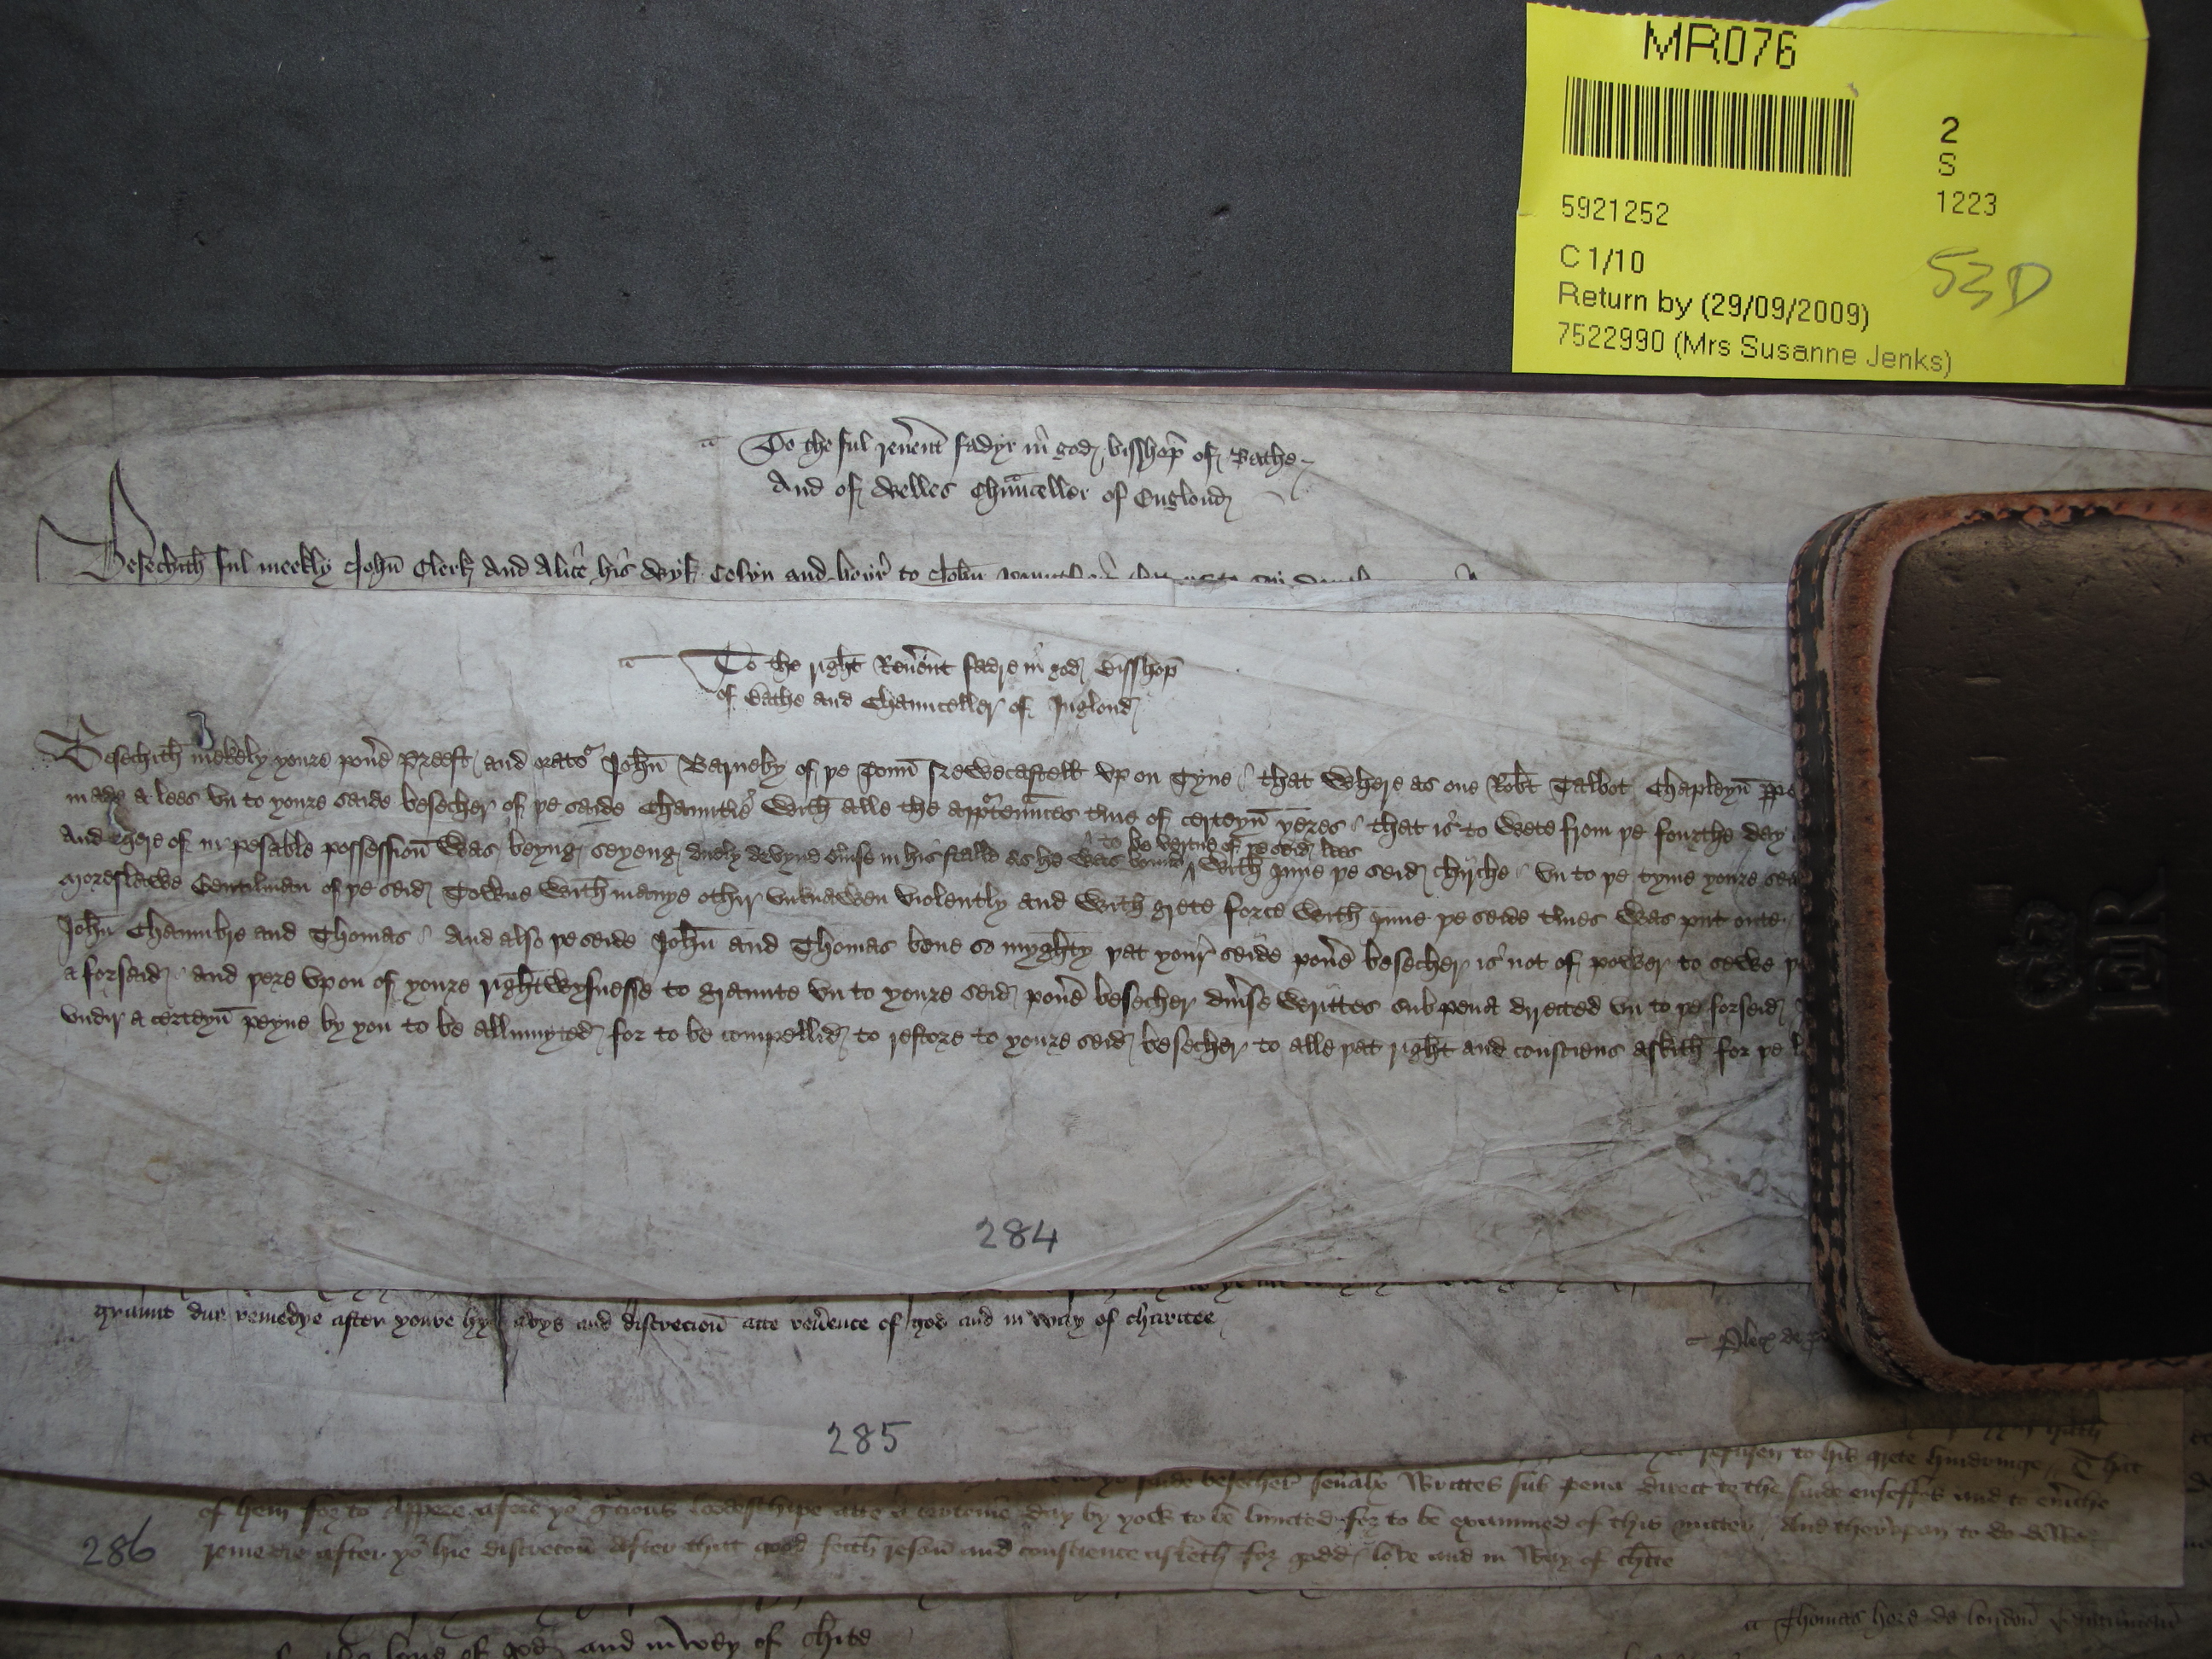 MR076
2
S
1223
5921252
C 1/10
53D
Return by (29/09/2009)
7522990 (Mrs Susanne Jenks)
To the ful reu'ent fadyr in god bisshop of Bathe
And of Welles Chaunceller of Englond
Besechith ful meekly John Clerk And Alice his Wyf Cosyn and heyr to John
To the right Reu'ent fadre in god Bisshop
of Bathe and Chaunceller of Inglond
Besechith mekely youre pou'e Preest and orato'r John Barneby of þe Toun Newecastell vp on Tyne that Where as one Rob't Talbot Chapleyn
made a lees vn to youre saide besecher of þe saide Chauntrie With alle the app'tenaunces t'me of certeyn yeres that is to Wete from þe fourthe day
to be vertue of þe seid lees
And there of in pesable possession Was beyng seyeng duely devyne s'uise in his stalle as he Was bounde With Inne þe seid chirche vn to þe tyme youre
Moreslawe Gentilman of þe seid Towne With manye othir vnknawen violently and With grete force With Inne þe seide t'mes Was put oute
John Chaumbre and Thomas And also þe seide John and Thomas bene so myghty þat your seide pou'e besecher is not of power to sewe
a forsaid and þere vpon of youre rightwysnesse to graunte vn to youre seid pou'e besecher diu'se Writtes sub pena directed vn to þe forseid
vndir a certeyn peyne by you to be allimyted for to be compellid to restore to youre seid besecher to alle þat right and consciens askith for þe
284
graunt due remedye after youre hye avys and discrecion atte reu'ence of god and in way of charitee
285
refusen to his grete hindringe That
saide besecher seu'alx Writtes sub pena direct to the saide enfeffes and to eu'iche
of hem for to Appere afore yo'r gracious lordeschipe atte a certeine day by yow to be limited for to be examined of this matter And ther'vpon to do
286
remedie after yo'r hie discrecion After that good feith reson and conscience asketh for godd love and in Way of ch'ite
Thomas hore de london
love of god and in Wey of ch'ite